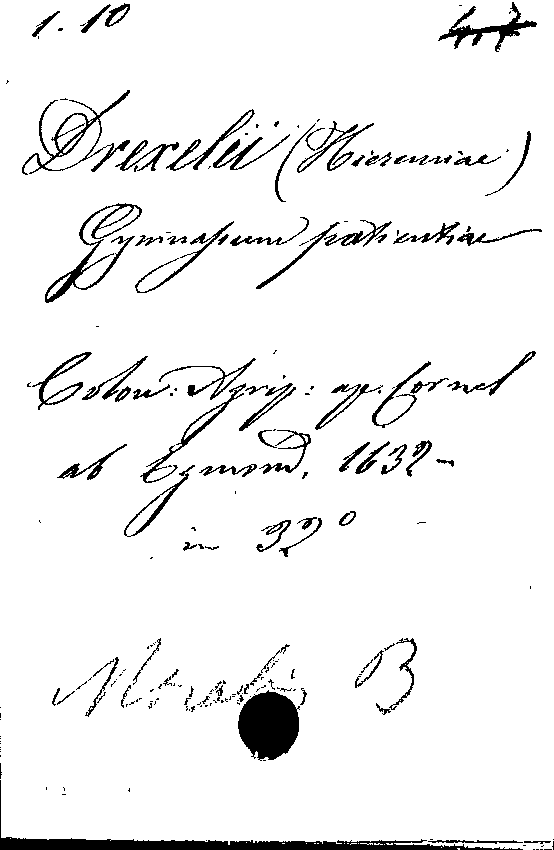 1.10
4.7
Drexelii (Hieremiae)
Gymnasium patientiae
Colon: Agrip: ap. Cornel
ab Egmond, 1632-
in 32°
Moralis B